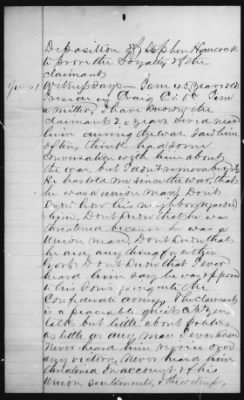 Deposition of Stephen
to prove the Loyalty of the
claimant
Ques 1 Witness says — I am 45 years old
I reside in Craig Co Va I am
a miller, I have known the
claimant 20 years lived near
him during the war. Saw him
often, think had some
conversation with him about
the war, but I don't remember it
He has told me since the war, that
he was a union man, Don't
know how his neighbors regarded
him. Don't know that he was
threatened because he was a
Union man, Don't know that
he did any thing for either
I don't know that I ever
heard him say he was opposed
to his sons going into the
Confederate army. The claimant
is a peaceable quiet citizen
talk but little about politics
as little as any man I ever
Never heard him rejoice over
any victory, Never heard him
threatened on account of his
Union sentiments,